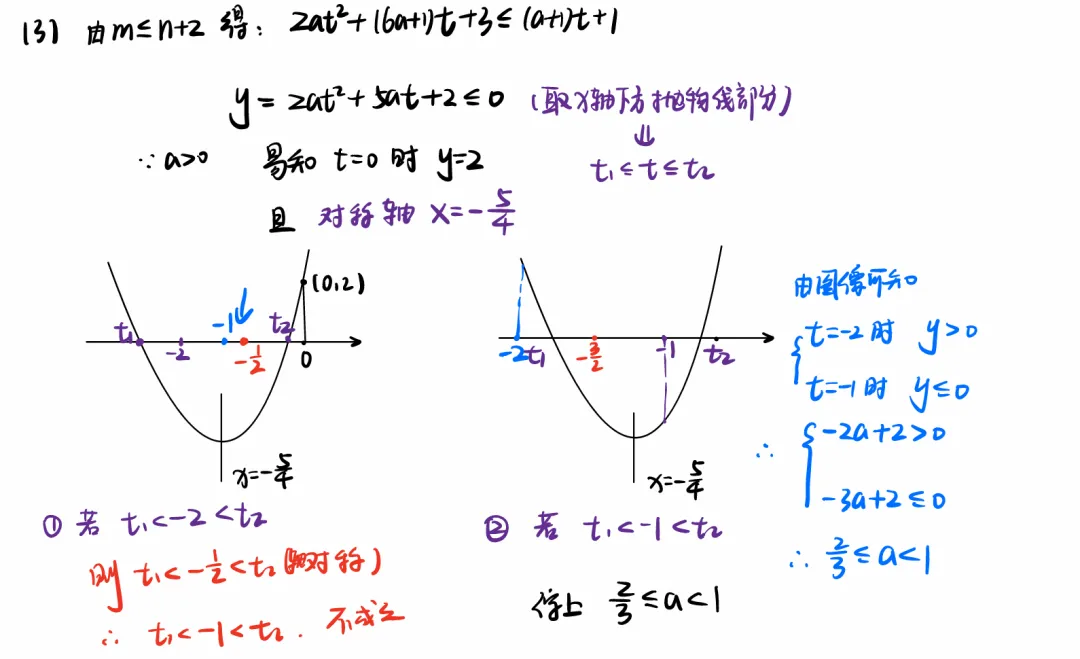 (3) 由m≤n+2 得: 2at²+(6a+1)t+3≤(a+1)t+1
y=2at²+5at+2≤0 (取x轴下方抛物线部分)
⇓
∵a>0 易知 t=0时 y=2
t₁≤t≤t₂
且 对称轴 x=-5/4
(0,2)
t₁ -2 -1 -1/2 t₂ 0
x=-5/4
-2 t₁ -3/2 -1 t₂
x=-5/4
由图像可知
{ t=-2时 y>0
t=-1时 y≤0
∴ { -2a+2>0
-3a+2≤0
∴ 2/3≤a<1
① 若 t₁<-2<t₂
则 t₁<-1/2<t₂ 对称)
∴ t₁<-1<t₂. 不成立
② 若 t₁<-1<t₂
综上 2/3≤a<1